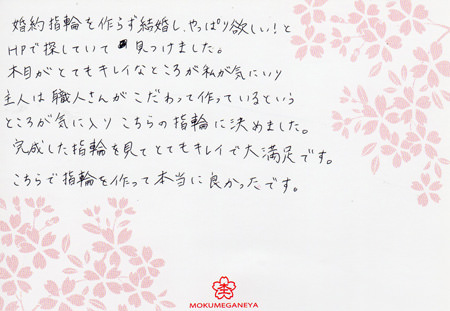 婚約指輪を作らず結婚し、やっぱり欲しい!と
HPで探していて 見つけました。
木目がとてもキレイなところが私が気に入り
主人は職人さんがこだわって作っているという
ところが気に入り こちらの指輪に決めました。
完成した指輪を見てとてもキレイで大満足です。
こちらで指輪を作って本当に良かったです。
MOKUMEGANEYA